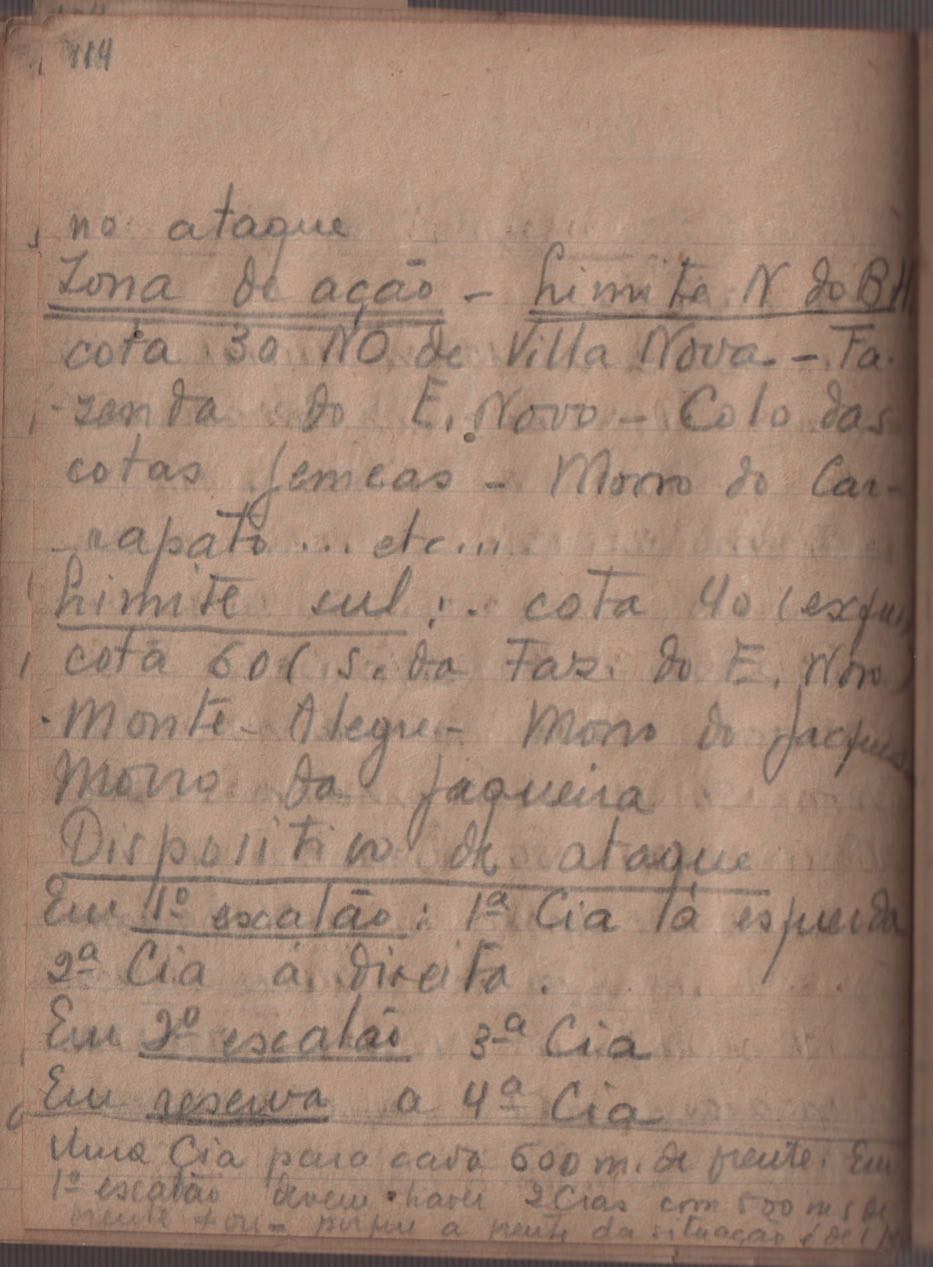 114
no ataque
Zona de ação - Limite N do B
cota 30 NO de Villa Nova - Fa-
zenda do E. Novo - Colo das
cotas gemeas - Morro do Car-
rapato ... etc...
Limite sul: .. cota 40 (exclu
cota 60 ( S. da Faz. do E. Novo)
Monte - Alegre - Morro do Jacques
Morro da Jaqueira
Dispositivo de ataque
Em 1º escalão: 1ª Cia á esquerda
2ª Cia á direita.
Em 2º escalão 3ª Cia
Em reserva a 4ª Cia
Uma Cia para cada 600 m. de frente. Em
1º escalão devem haver 2 Cias com 500 ms de
frente + ou - porque a frente da situação é de